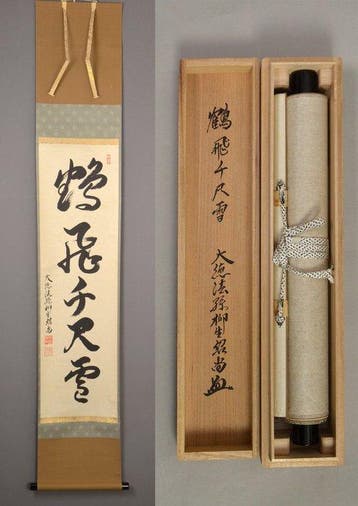 鶴飛千尺雪
大徳法孫柳生紹尚
鶴飛千尺雪
大徳法孫柳生紹尚